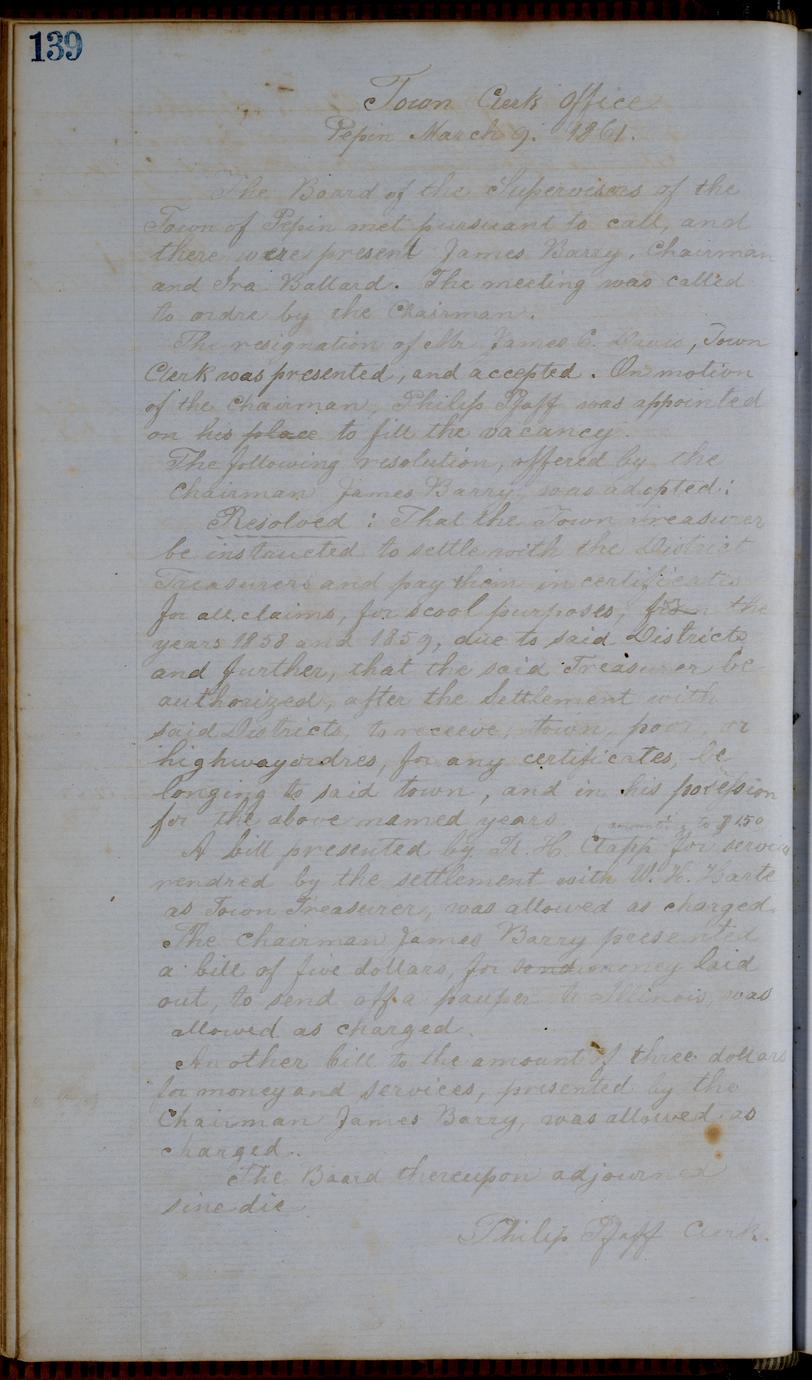 139
Town Clerk Office
Pepin March 9. 1861.
The Board of the Supervisors of the
Town of Pepin met pursuant to call, and
there were present James Barry, Chairman
and Ira Ballard. The meeting was called
to ordre by the Chairman.
The resignation of Mr James C. Davis, Town
Clerk was presented, and accepted. On motion
of the Chairman, Philip Pfaff was appointed
on his place to fill the vacancy.
The following resolution, offered by the
Chairman James Barry, was adopted:
Resolved: That the Town Treasurer
be instructed to settle with the District
Treasurers and pay them in certificates
for all claims, for scool purposes, from the
years 1858 and 1859, due to said Districts
and further, that the said Treasurer be
authorized, after the Settlement with
said Districts, to receeve, town, poor, or
highway ordres, for any certificates, be
longing to said town, and in his possession
for the above named years
amounting to $1.50
A bill presented by H. Clapp for services
rendred by the settlement with W. H. Harte
as Town Treasurer, was allowed as charged.
The Chairman James Barry presented
a bill of five dollars, for money laid
out, to send off a pauper to Illinois, was
allowed as charged.
Another bill to the amount of three dollars
for money and services, presented by the
Chairman James Barry, was allowed as
charged.
The Board thereupon adjourned
sine die
Philip Pfaff Clerk.